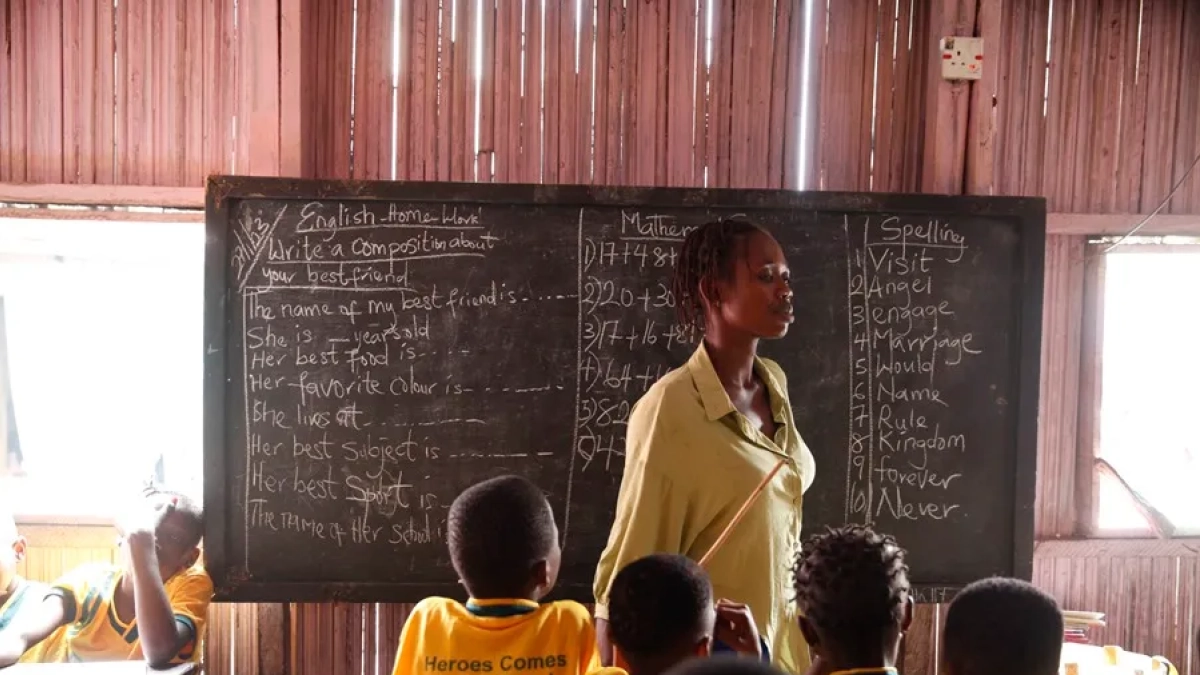 English Home Work
Write a composition about
your best friend
The name of my best friend is . . . . . --
She is __ years old
Her best food is . . . .
Her favorite colour is - . . - - - - -
She lives at . - - - - - - - -
Her best Subject is - - - - - - - -
Her best Sport is - -
The name of Her School i
Mathem
1) 17 + 48 +
2) 20 + 30
3) 17 + 16 + 8
4) 64 + 1
5) 82
Spelling
1 Visit
2 Angel
3 engage
4 Marriage
5 Would
6 Name
7 Rule
8 Kingdom
9 forever
10 Never.
Heroes Comes